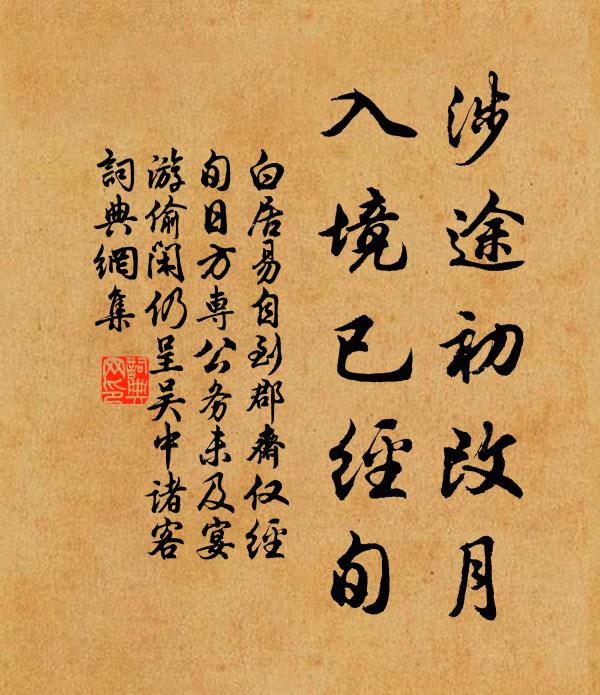 涉途初改月
入境已經旬
白居易自到郡齋仅經
旬日方専公务未及宴
游偷閑仍呈吴中诸客
詞典網集
詞典网印